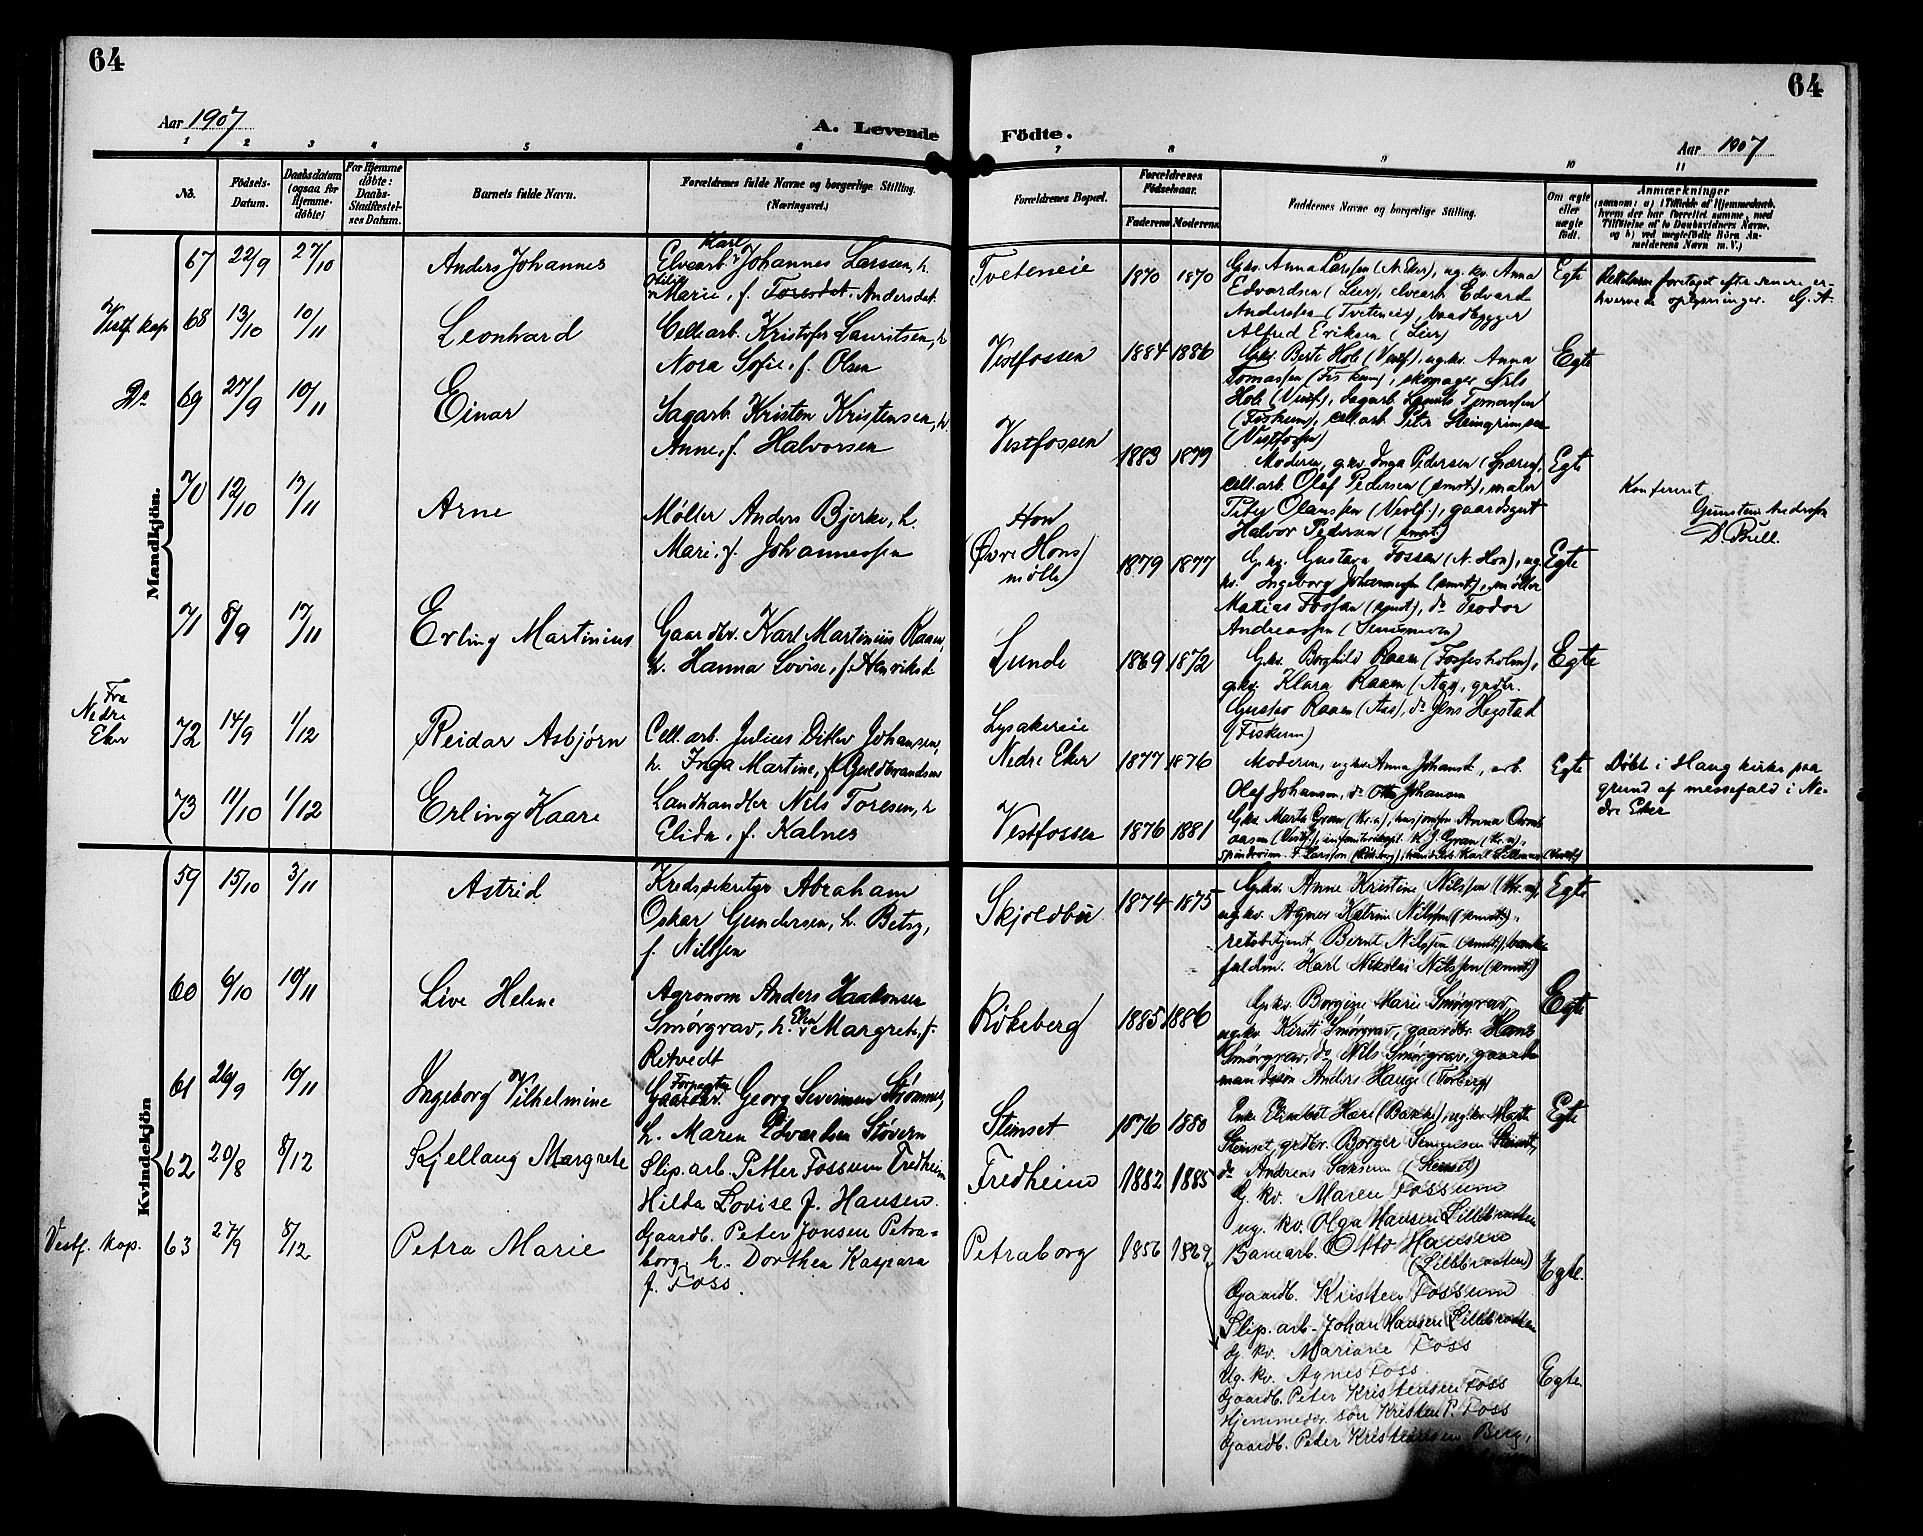 64
64
Aar 1907
A. Levende Födte.
Aar 1907
1 2 3 4 5 6 7 8 9 10 11
No.
Födsels-Datum.
Daabsdatum (ogsaa for Hjemme-döbte)
For Hjemme döbte: Daabs-Stadfæstel-ses Datum.
Barnets fulde Navn.
Forældrenes fulde Navne og borgerlige Stilling. (Næringsvei.)
Forældrenes Bopæl.
Forældrenes Födselsaar.
Faderens Moderens
Faddernes Navne og borgerlige Stilling.
Om ægte eller uægte födt.
Anmærkninger
(saasom: a) i Tilfælde af Hjemmedaab, hvem der har forrettet samme, med Tilföielse af to Daabsvidners Navne, og b) ved uegtefödte Börn Anmelderens Navn m. V.)
Mandkjön.
67 22/9 27/10 Anders Johannes
Elvearb. Karl Johannes Larsen, h.
Marie, f. Andersdat.
Tveteneie 1870 1870
G.kv. Anna Larsen (N. Eker), ug. kv. Anna
Edvardsen (Lier), elvearb. Edvard
Andersen (Tveteneie), baadbygger
Alfred Eriksen (Lier)
Egte
Rettelsen foretaget efter senere er-
hvervede oplysninger. G. A.
Vestf. kap 68 13/10 10/11 Leonhard
Cell.arb. Kristofer Lauritsen, h.
Nora Sofie, f. Olsen
Vestfossen 1884 1886
G.kv. Berte Hob (Vestf.), ug.kv. Anna
Tomassen (Fiskum), skomager Nils
Hob (Vestf.), sagarb. Tomassen
(Fiskum), cell.arb. Peter Steingrimsen
(Vestfossen)
Egte
Do 69 27/9 10/11 Einar
Sagarb. Kristen Kristensen, h.
Anne, f. Halvorsen
Vestfossen 1883 1879
Moderen, g.kv. Inga Pedersen
cell.arb. Olaf Pedersen (smst.), maler
Peter Olaussen (Vestf.), gaardsgut
Halvor Pedersen (smst.)
Egte
Konfereret
Gunstein Anderssen
D. Bull.
70 12/10 17/11 Arne
Møller Anders Bjerke, h.
Mari, f. Johannessen
Hon
(Øvre Hons
mølle)
1879 1877
G.kv. Gustava Fossen (N. Hon), ug.
kv. Ingeborg Johannessen (smst.), møller
Matias Fossen (smst.), do Teodor
Andreassen
Egte
71 8/9 17/11 Erling Martinius
Gaardbr. Karl Martinius Raaen,
h. Hanna Lovise, f. Henriksd.
Lunde 1869 1872
G.kv. Borghild Raaen (Fossesholm),
g.kv. Klara Raaen (Aas), grdbr.
Gustav Raaen (Aas), do Jens Hegstad
(Fiskum)
Egte
Fra
Nedre
Eker
72 14/9 1/12 Reidar Asbjørn
Cell. arb. Julius Ditlev Johansen,
h. Inga Martine, f. Guldbrandsen
Lysakereie
Nedre Eker 1877 1876
Moderen, ug.kv. Anna Johansen, arb.
Olaf Johansen, do Otto Johansen
Egte
Døbt i Haug kirke paa
grund af messefald i Ne-
dre Eker
73 11/10 1/12 Erling Kaare
Landhandler Nils Toresen, h.
Elida, f. Kalnes
Vestfossen 1876 1881
G.kv. Marta Gran (Kr.a), husjomfru Anna
(Vestf.), K. J. Gran (Kr.a),
F. Larssen
Kvindekjön
59 15/10 3/11 Astrid
Kredssekretær Abraham
Oskar Gundersen, h. Betsy,
f. Nilssen
Skjoldbu 1874 1875
G.kv. Anne Kristine Nilssen (Kr.a),
ug.kv. Agnes Katrine Nilssen (smst.),
retsbetjent Bernt Nilssen (smst.),
Karl Nikolai Nilssen (smst.)
Egte
60 6/10 10/11 Live Helene
Agronom Anders Haakonsen
Smørgrav, h. Ellen Margrete, f.
Retvedt
Røkeberg 1885 1886
G.kv. Borgine Marie Smørgrav,
ug.kv. Kirsti Smørgrav, gaardbr. Hans
Smørgrav, do Nils Smørgrav, gaard-
mandssøn Anders Hauge
Egte
61 26/9 10/11 Ingeborg Vilhelmine
Forpagter Georg Severinsen Strømmen,
h. Maren Edvardsen Støvern
Stenset 1876 1880
Enke (Bakke), ug.kv. Marte
Stenset, grdbr. Borger Simensen Stenset,
do Andreas (Stenset)
Egte
62 20/8 8/12 Skjellaug Margrete
Slip.arb. Petter Fossum Fredheim
Hilda Lovise f. Hansen.
Fredheim 1882 1885
G. kv. Maren Fossum
ug. kv. Olga Hansen Lillebraaten
Banearb. Otto Hansen
(Lillebraaten)
Gaardb. Kristen Fossum
Slip. arb. Johan Hansen Lillebraaten
Egte.
Vestf. kap. 63 27/9 8/12 Petra Marie
Gaardb. Peter Jonsen Petra-
borg, h. Dorthea Kaspara
f. Foss.
Petraborg 1856 1869
G. kv. Mariane Foss
Ug. kv. Agnes Foss
Gaardb. Peter Kristensen Foss
Hjemmev. søn Kristen P. Foss
Gaardb. Peder Kristensen Berg,
Egte.